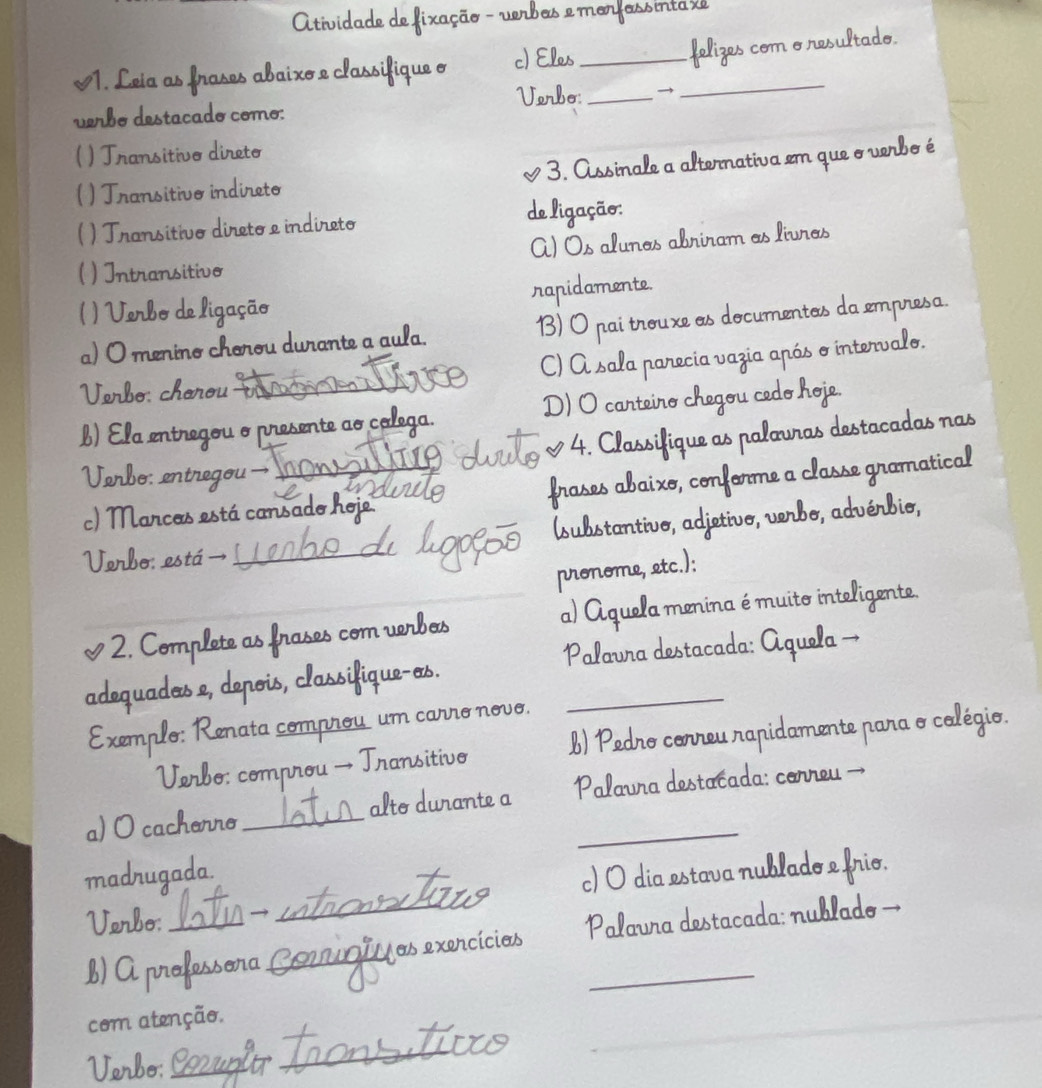 Atividade de fixação - verbos e morfossintaxe
1. Leia as frases abaixo e classifique o
verbo destacado como:
( ) Transitivo direto
( ) Transitivo indireto
( ) Transitivo direto e indireto
( ) Intransitivo
( ) Verbo de ligação
a) O menino chorou durante a aula.
Verbo: chorou →
b) Ela entregou o presente ao colega.
Verbo: entregou → Transitivo direto
e indireto
c) Marcos está cansado hoje.
Verbo: está → Verbo de ligação
2. Complete as frases com verbos
adequados e, depois, classifique-os.
Exemplo: Renata comprou um carro novo.
Verbo: comprou → Transitivo
a) O cachorro latiu alto durante a
madrugada.
Verbo: latiu → intransitivo
b) A professora corrigiu os exercícios
com atenção.
Verbo: transitivo
c) Eles ______ felizes com o resultado.
Verbo: ______ → ______
3. Assinale a alternativa em que o verbo é
de ligação:
A) Os alunos abriram os livros
rapidamente.
B) O pai trouxe os documentos da empresa.
C) A sala parecia vazia após o intervalo.
D) O carteiro chegou cedo hoje.
4. Classifique as palavras destacadas nas
frases abaixo, conforme a classe gramatical
(substantivo, adjetivo, verbo, advérbio,
pronome, etc.):
a) Aquela menina é muito inteligente.
Palavra destacada: Aquela →
______
b) Pedro correu rapidamente para o colégio.
Palavra destacada: correu →
______
c) O dia estava nublado e frio.
Palavra destacada: nublado →
______